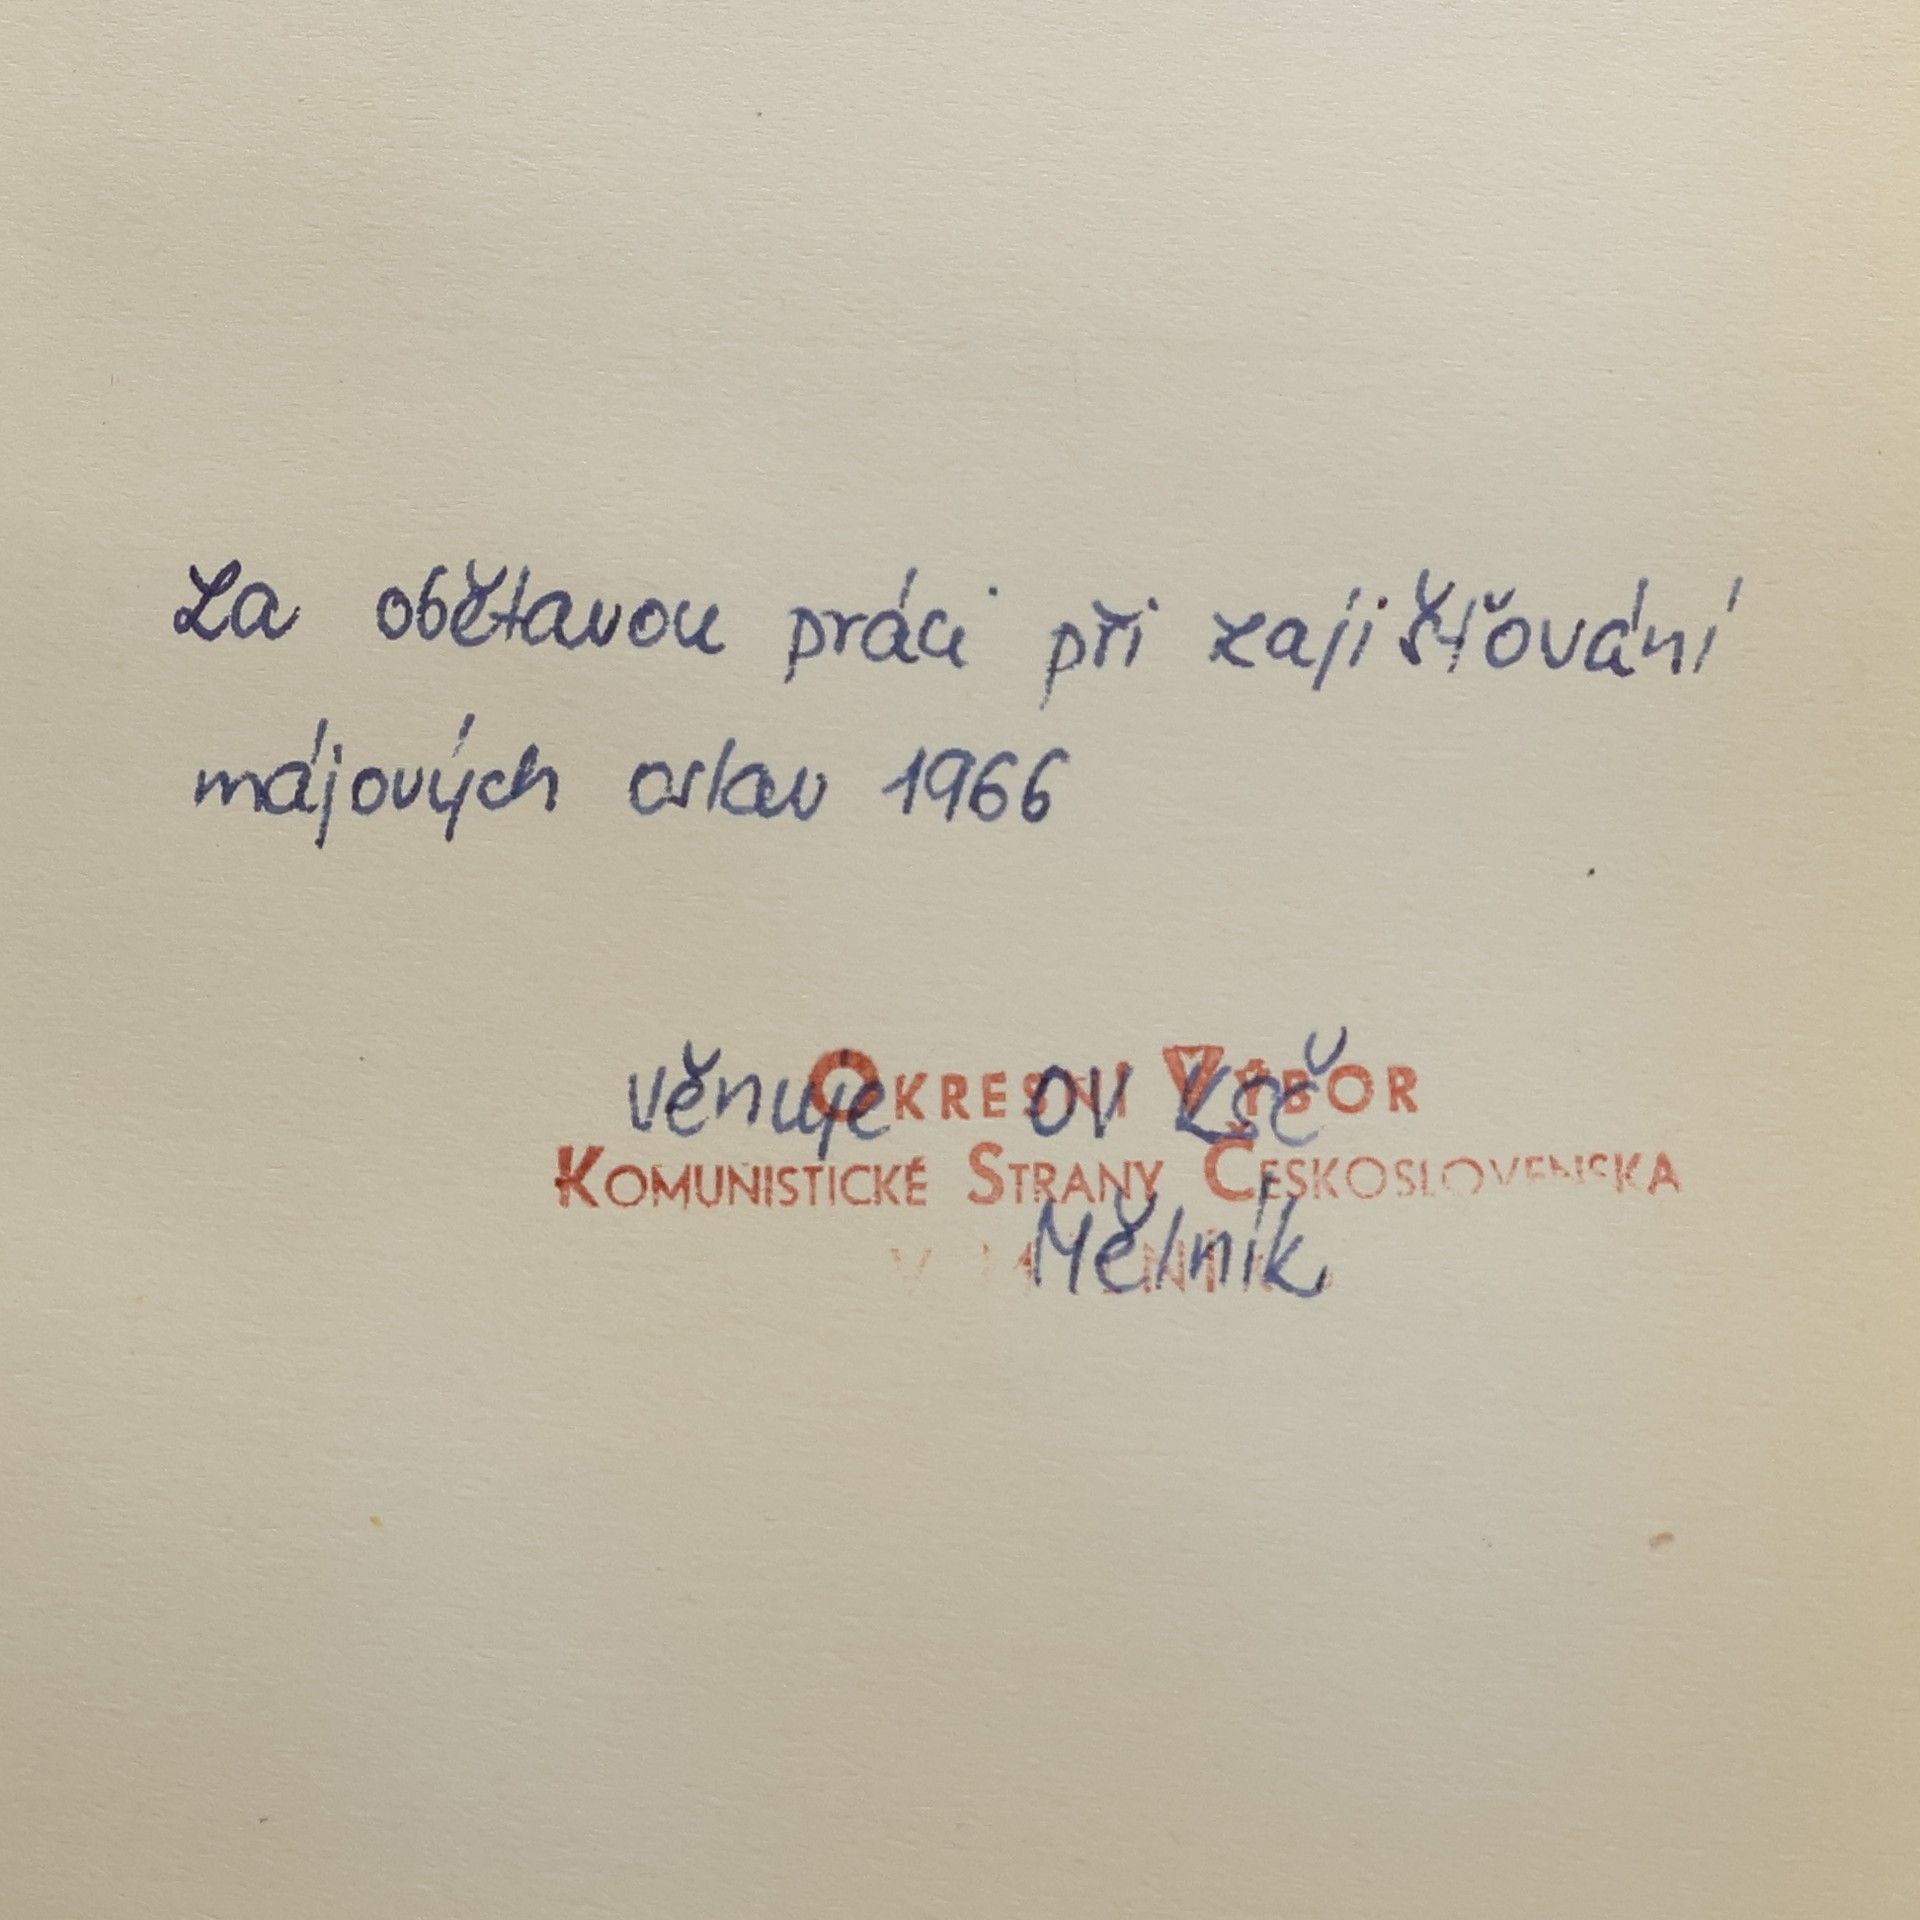 Za obětavou práci při zajišťování
májových oslav 1966
věnuje OV KSČ
OKRESNÍ VÝBOR
KOMUNISTICKÉ STRANY ČESKOSLOVENSKA
Mělník
V